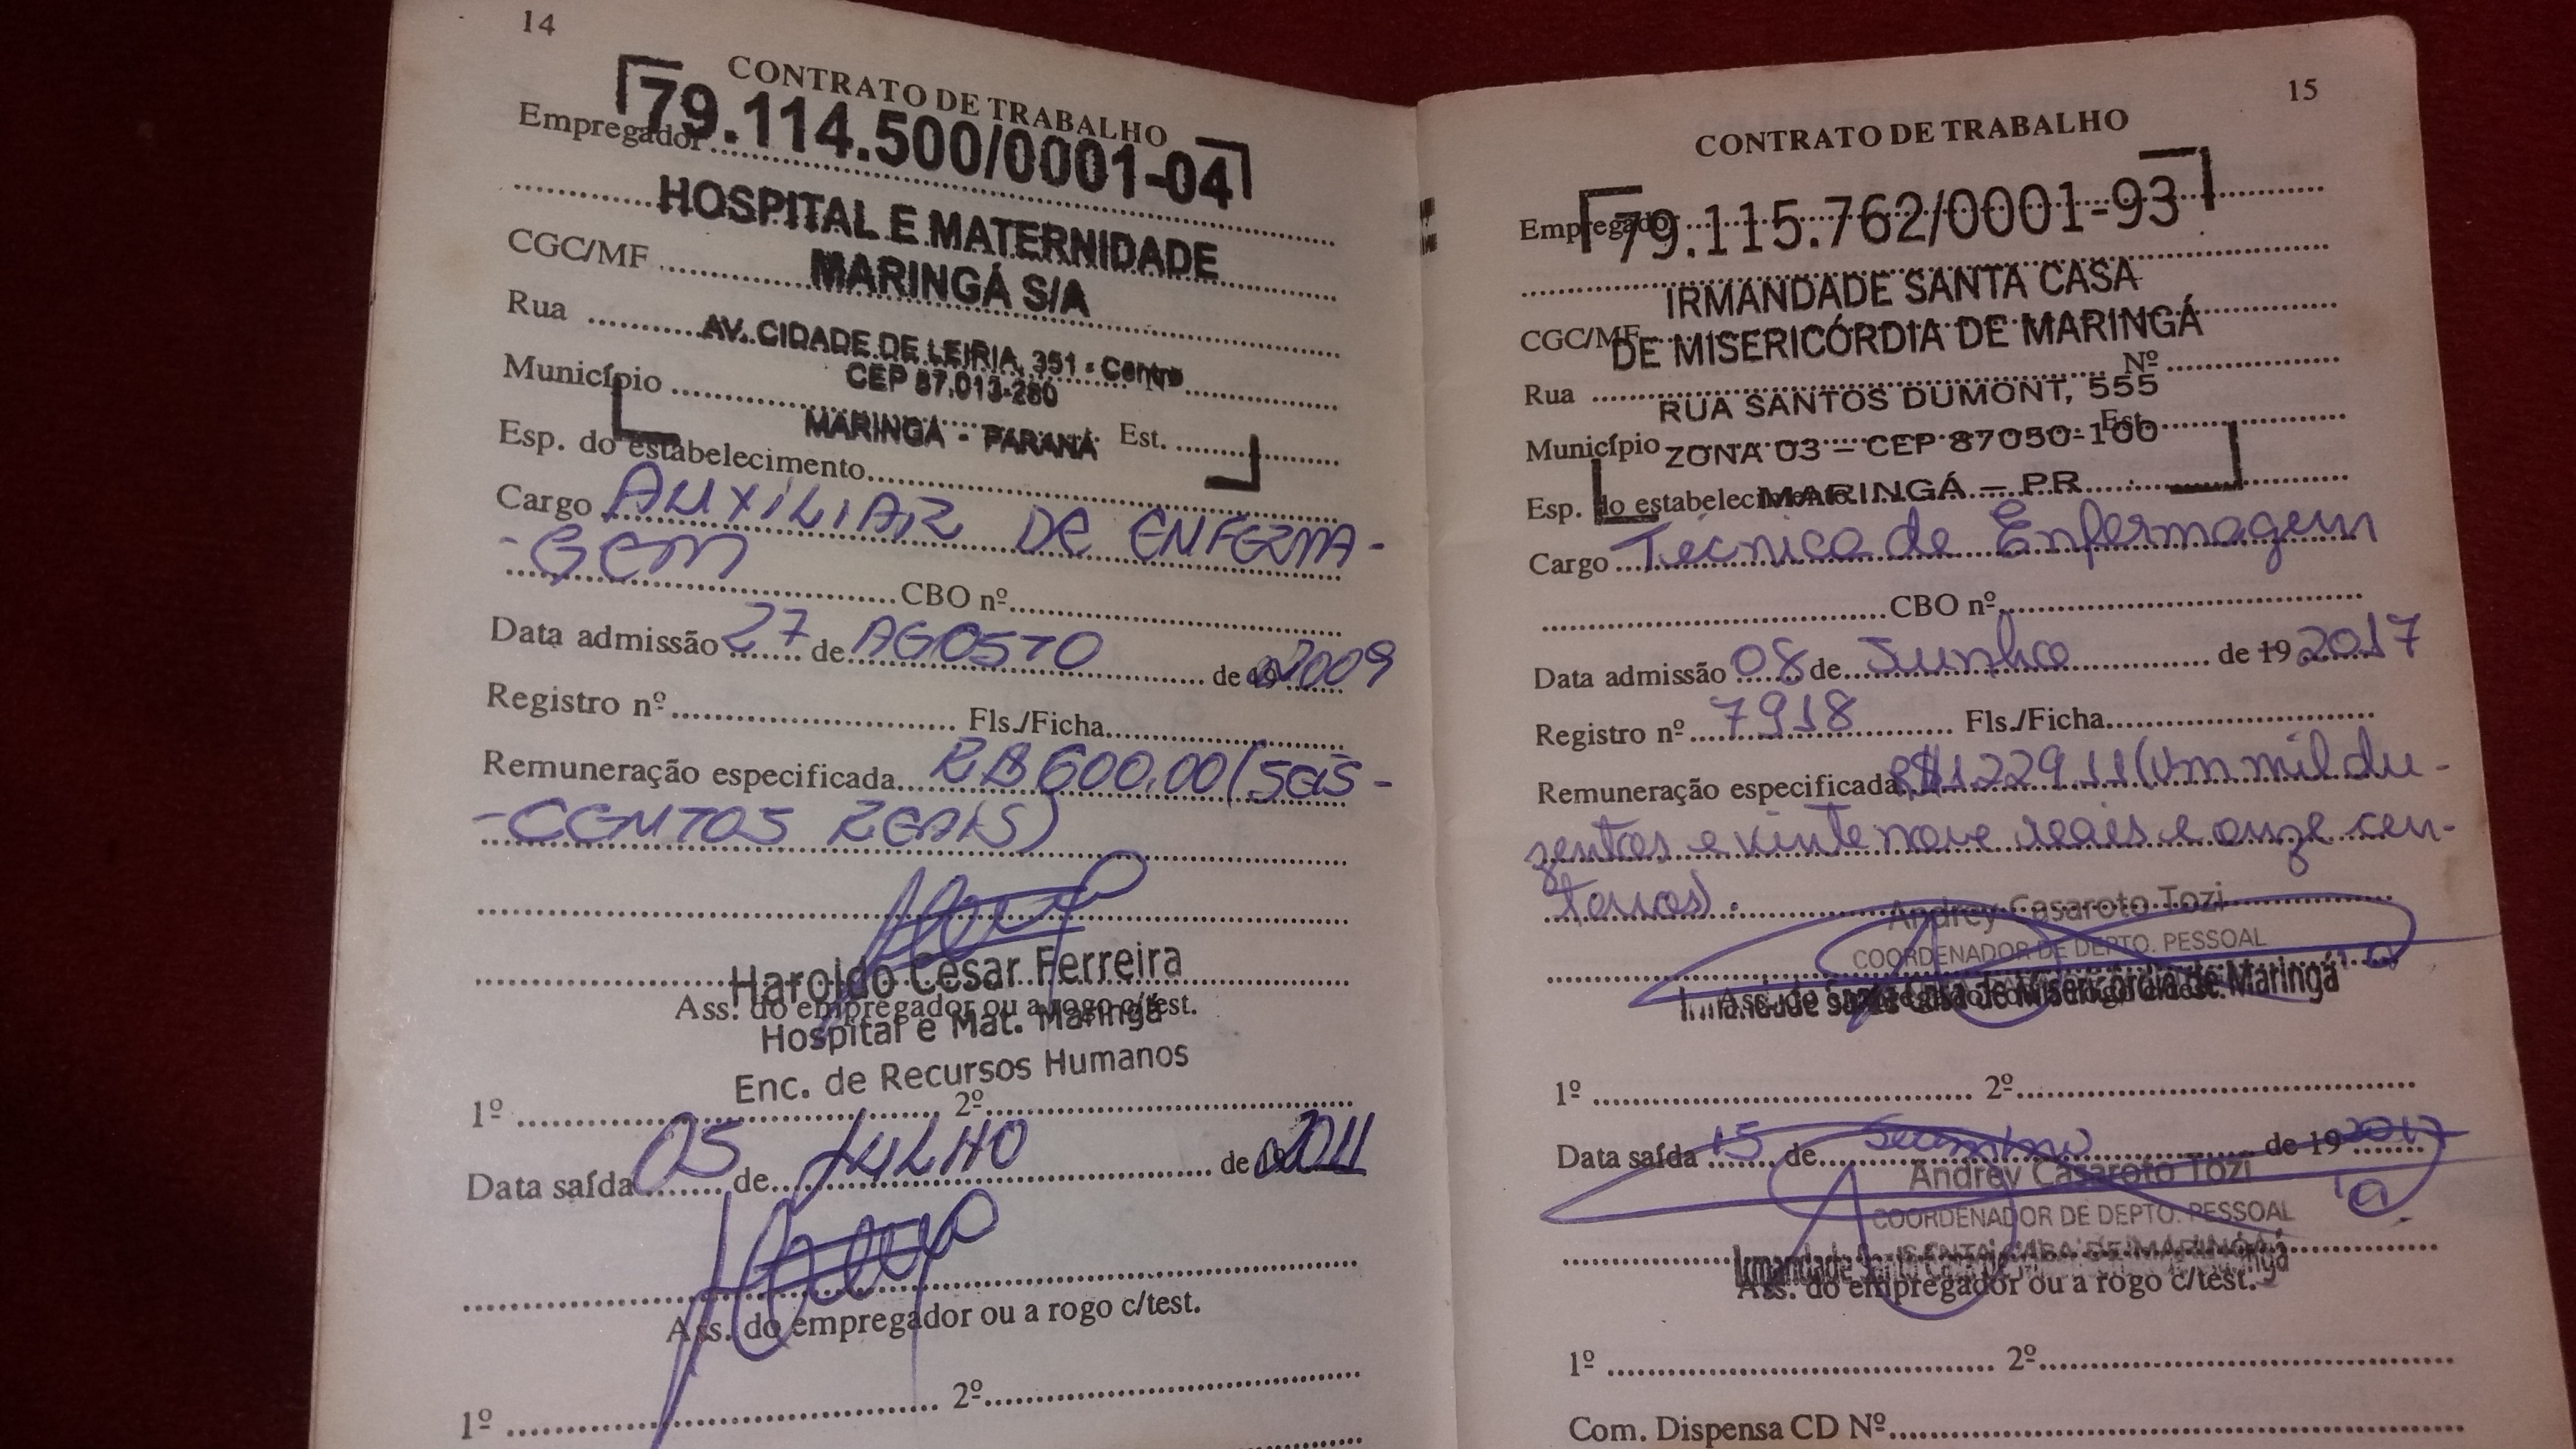 14
CONTRATO DE TRABALHO
79.114.500/0001-04
Empregador
HOSPITAL E MATERNIDADE
CGC/MF
MARINGÁ S/A
Rua
AV. CIDADE DE LEIRIA, 351 - Centro
CEP 87.013-280
Município
MARINGÁ - PARANÁ Est.
Esp. do estabelecimento
Cargo AUXILIAR DE ENFERMA-
-GEM
CBO nº
Data admissão 27 de AGOSTO de 2009
Registro nº Fls./Ficha
Remuneração especificada R$ 600,00 (SEIS-
-CENTOS REAIS)
Haroldo Cesar Ferreira
Ass. do empregador ou a rogo c/test.
Hospital e Mat. Maringá
Enc. de Recursos Humanos
1º 2º
Data saída 05 de JULHO de 2011
Ass. do empregador ou a rogo c/test.
1º 2º
15
CONTRATO DE TRABALHO
Empregador 79.115.762/0001-93
IRMANDADE SANTA CASA
CGC/MF
DE MISERICÓRDIA DE MARINGÁ
Nº
Rua
RUA SANTOS DUMONT, 555
Est.
Município
ZONA 03 - CEP 87050-100
Esp. do estabelecimento
MARINGÁ - PR
Cargo Técnico de Enfermagem
CBO nº
Data admissão 08 de Junho de 19 2017
Registro nº 7918 Fls./Ficha
Remuneração especificada R$1229,11 (Um mil du-
zentos e vinte nove reais e onze cen-
tavos).
Andrey Casaroto Tozi
COORDENADOR DE DEPTO. PESSOAL
Santa Casa de Misericórdia de Maringá
1º 2º
Data saída 15 de de 19 2017
Andrey Casaroto Tozi
COORDENADOR DE DEPTO. PESSOAL
SANTA CASA DE MARINGÁ
Irmandade Santa Casa de
Ass. do empregador ou a rogo c/test.
1º 2º
Com. Dispensa CD Nº